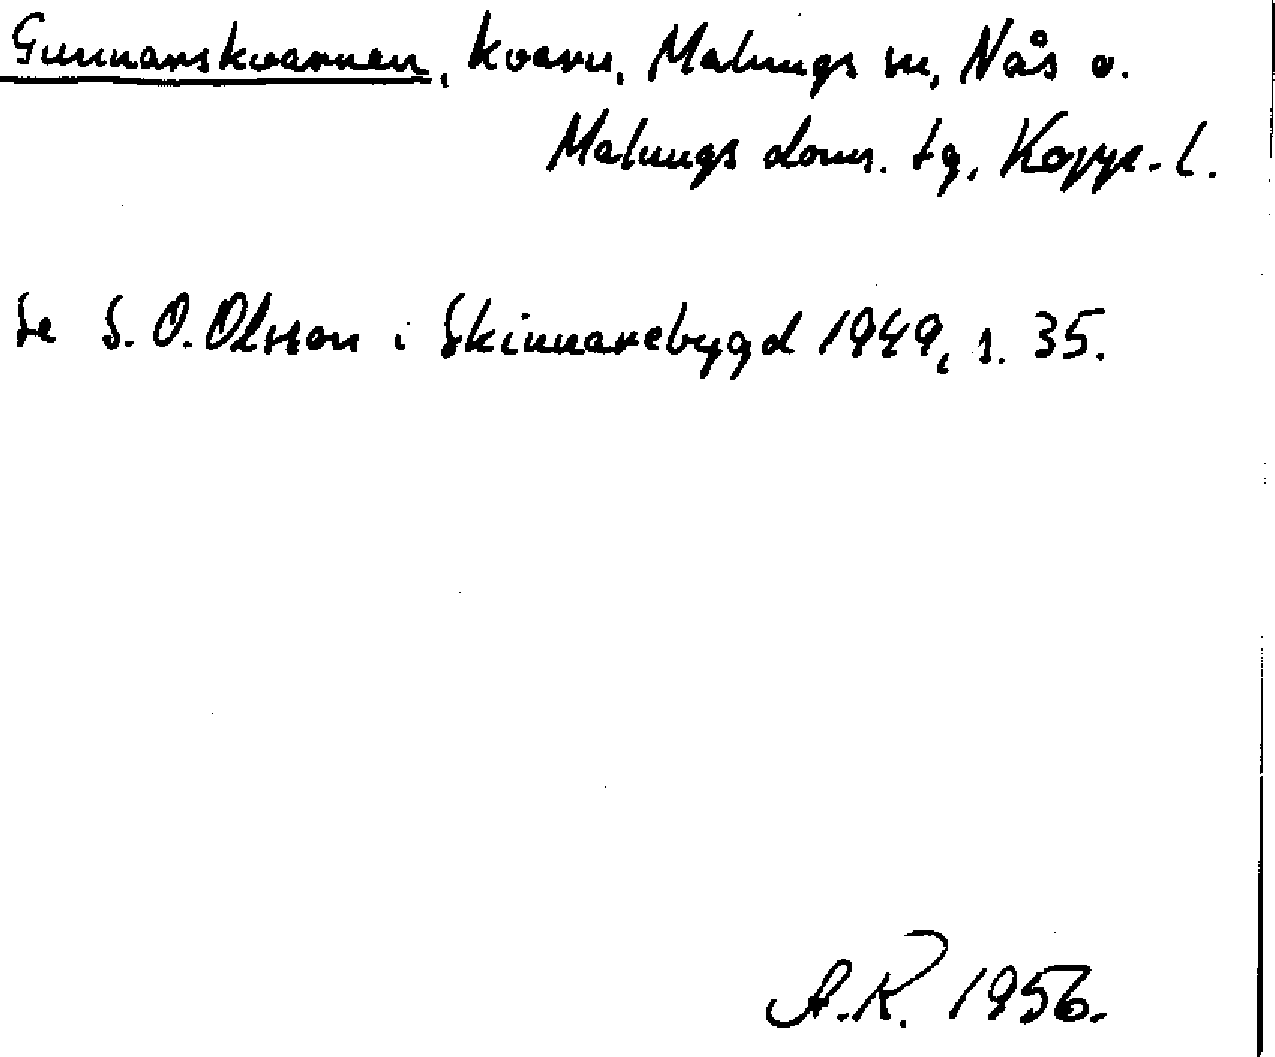 Gunnarskvarnen, kvarn, Malungs sn, Nås o.
Malungs doms. tg, Kopp. l.
Se S. O. Olsson i Skinnarebygd 1949, s. 35.
A.K. 1956.